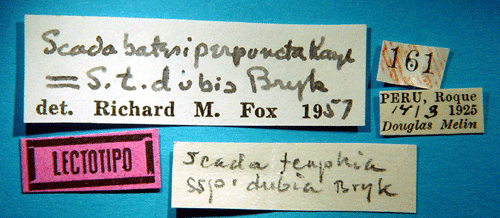 Scada batesi perpuncta Kaye
= S. t. dubia Bryk
det. Richard M. Fox 1957
161
PERU, Roque
14/3 1925
Douglas Melin
LECTOTIPO
Scada teaphia
ssp. dubia Bryk